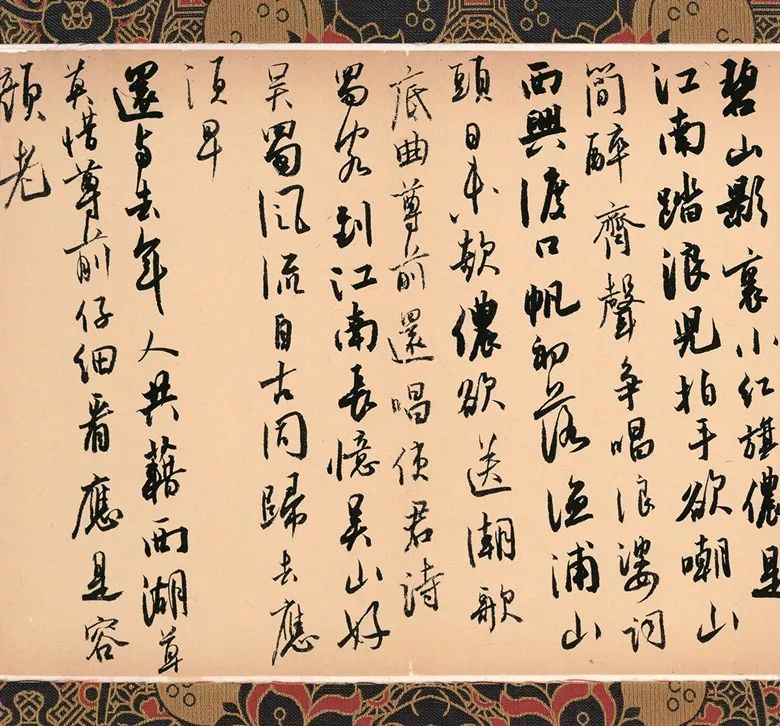 碧山影裏小紅旗儂是
江南踏浪兒拍手欲嘲山
簡醉齊聲爭唱浪婆詞
西興渡口帆初落漁浦山
頭日未欹儂欲送潮歌
底曲尊前還唱使君詩
蜀客到江南長憶吳山好
吳蜀風流自古同歸去應
須早
還與去年人共藉西湖草
莫惜尊前仔細看應是容
顏老